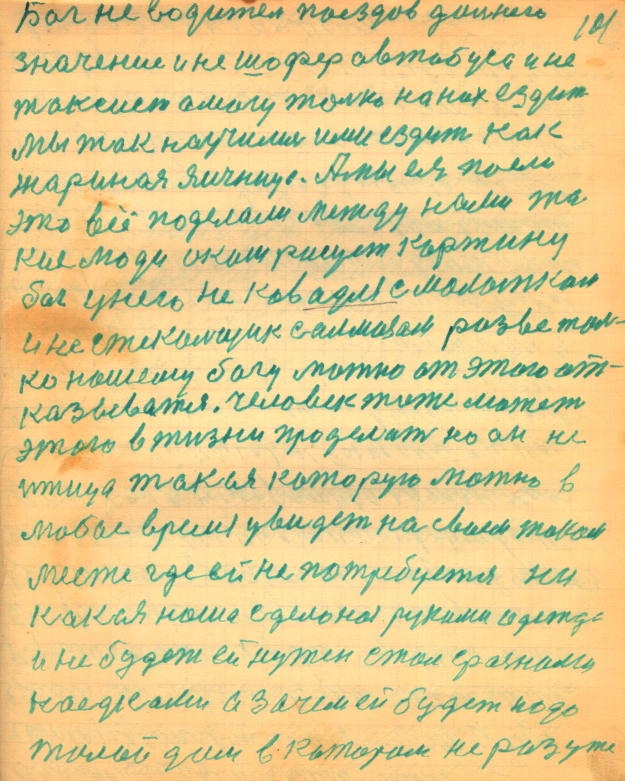 101
Бог не водител поездов даннего
значение и не шофер автобуса и не
таксист а могу только на них ездит
мы так научили или ездит как
жариная яичницс. А мы ея поели
это всё поделали между нами та
кие люди окот рисует картину
бог у него не ковадлс с молотком
и не стекольщик с алмазом разве тол-
ко нашему богу можно от этого от-
казыватя. Человек тоже может
этого в жизни проделат но он не
птица такая которую можно в
любое время увидет на своем таком
месте где ей не потребуетя ни
какая наша сделоная руками одежда
и не будет ей нужен стол с разными
наедками а зачем ей будет надо
жилой дом в котором не разу же